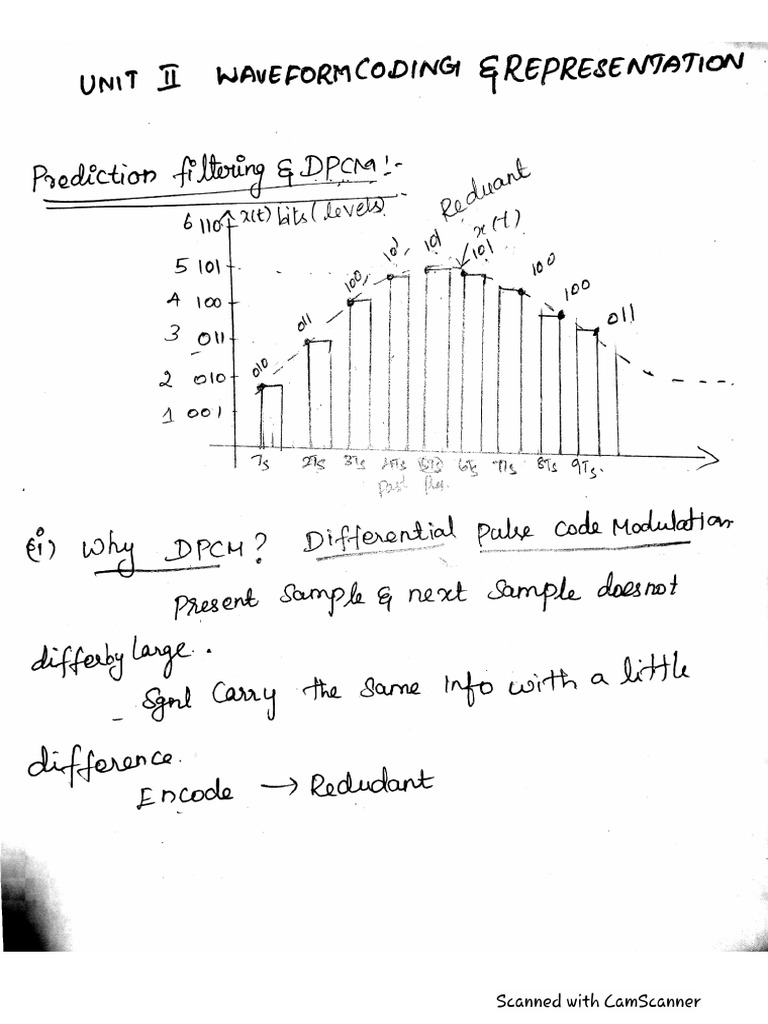 UNIT II WAVEFORM CODING & REPRESENTATION
Prediction filtering & DPCM:-
Reduant
6 110 x(t) bits (levels)
x(t)
5 101
4 100
3 011
2 010
1 001
010 011 100, 101, 101 101 100 100 011
Ts 2Ts 3Ts 4Ts 5Ts 6Ts 7Ts 8Ts 9Ts.
Past
(i) Why DPCM? Differential Pulse Code Modulation
Present Sample & next Sample does not
differby large.
- Sgnl Carry the same Info with a little
difference.
Encode → Redudant
Scanned with CamScanner